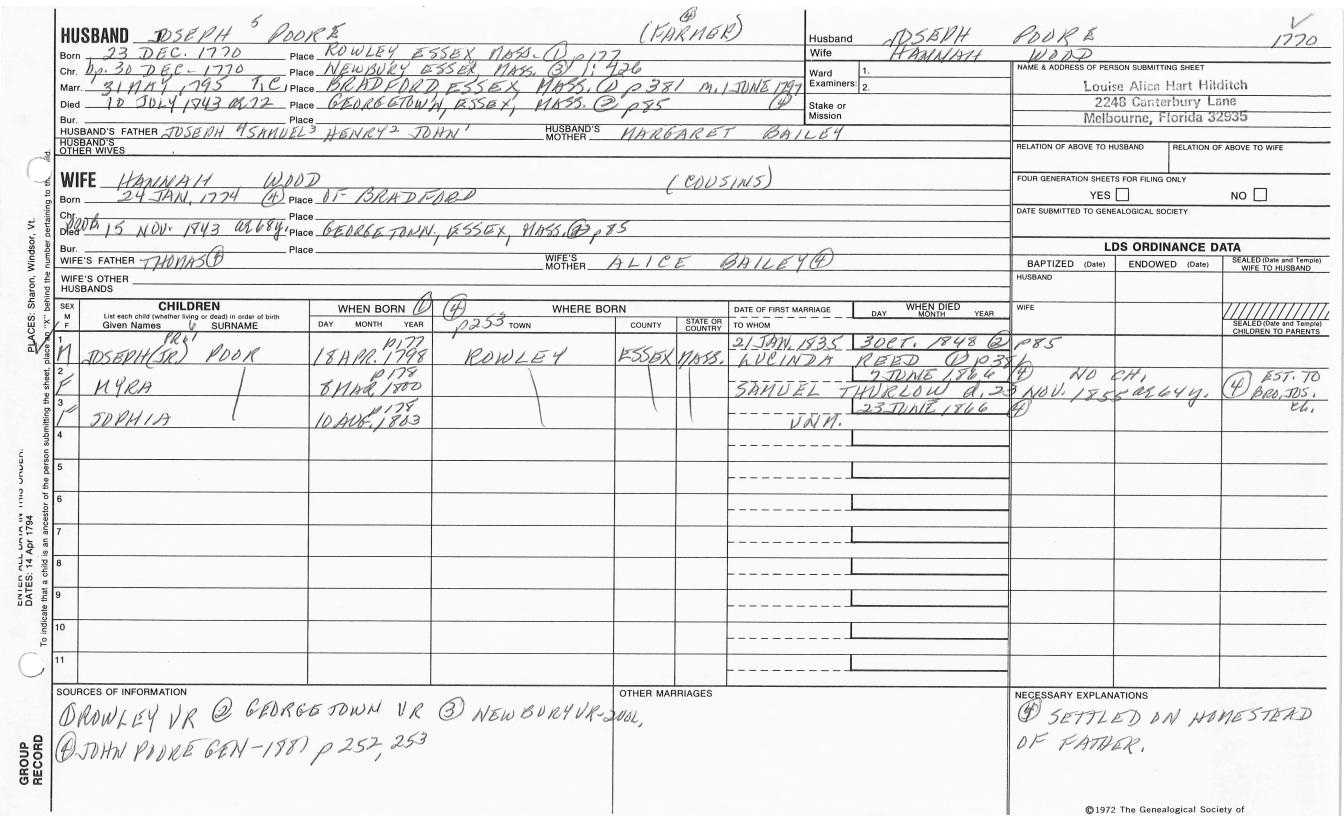 HUSBAND JOSEPH 5 POORE (FARMER) ④
Born 23 DEC. 1770 Place ROWLEY ESSEX MASS. ① p177
Chr. bp. 30 DEC - 1770 Place NEWBURY ESSEX MASS. ③ 1:426
Marr. 31 MAY, 1795 T.C. Place BRADFORD, ESSEX, MASS. ① p381 m. 1 JUNE 1797 ④
Died 10 JULY, 1843 ae 72 Place GEORGETOWN, ESSEX, MASS. ② p85
Bur. Place
HUSBAND'S FATHER JOSEPH 4 SAMUEL 3 HENRY 2 JOHN 1 HUSBAND'S MOTHER MARGARET BAILEY
HUSBAND'S OTHER WIVES
Husband JOSEPH POORE 1770
Wife HANNAH WOOD
Ward Examiners: 1.
2.
Stake or Mission
NAME & ADDRESS OF PERSON SUBMITTING SHEET
Louise Alice Hart Hilditch
2248 Canterbury Lane
Melbourne, Florida 32935
RELATION OF ABOVE TO HUSBAND RELATION OF ABOVE TO WIFE
FOUR GENERATION SHEETS FOR FILING ONLY
YES NO
DATE SUBMITTED TO GENEALOGICAL SOCIETY
WIFE HANNAH WOOD (COUSINS)
Born 24 JAN, 1774 ④ Place OF BRADFORD
Chr. Place
Died 15 NOV. 1843 ae 68y. Place GEORGETOWN, ESSEX, MASS. ② p85
Bur. Place
WIFE'S FATHER THOMAS ④ WIFE'S MOTHER ALICE BAILEY ④
WIFE'S OTHER HUSBANDS
LDS ORDINANCE DATA
BAPTIZED (Date) ENDOWED (Date) SEALED (Date and Temple) WIFE TO HUSBAND
HUSBAND
WIFE
SEALED (Date and Temple) CHILDREN TO PARENTS
SEX M F
CHILDREN
List each child (whether living or dead) in order of birth
Given Names 6 SURNAME
WHEN BORN ①
DAY MONTH YEAR
④ p253 WHERE BORN
TOWN COUNTY STATE OR COUNTRY
DATE OF FIRST MARRIAGE
TO WHOM
WHEN DIED
DAY MONTH YEAR
1 p177 21 JAN. 1835 3 OCT. 1848 ② p85
M JOSEPH (JR) POOR 18 APR. 1798 ROWLEY ESSEX MASS. LUCINDA REED ① p386
2 p178 7 JUNE 1866 ④ NO CH.
F MYRA 8 MAR, 1800 SAMUEL THURLOW d. 23 NOV. 1855 ae 64y. ④ EST. TO BRO, JOS. ch.
3 p178 23 JUNE 1866 ④
F SOPHIA 10 AUG, 1803 UNM.
4
5
6
7
8
9
10
11
SOURCES OF INFORMATION
① ROWLEY VR ② GEORGETOWN VR ③ NEWBURY VR-2VOL,
④ JOHN POORE GEN - 1881 p 252, 253
OTHER MARRIAGES
NECESSARY EXPLANATIONS
④ SETTLED ON HOMESTEAD
OF FATHER.
©1972 The Genealogical Society of
PLACES: Sharon, Windsor, Vt.
ENTER ALL DATA IN THIS ORDER:
DATES: 14 Apr 1794
To indicate that a child is an ancestor of the person submitting the sheet, place an "X" behind the number pertaining to
GROUP RECORD